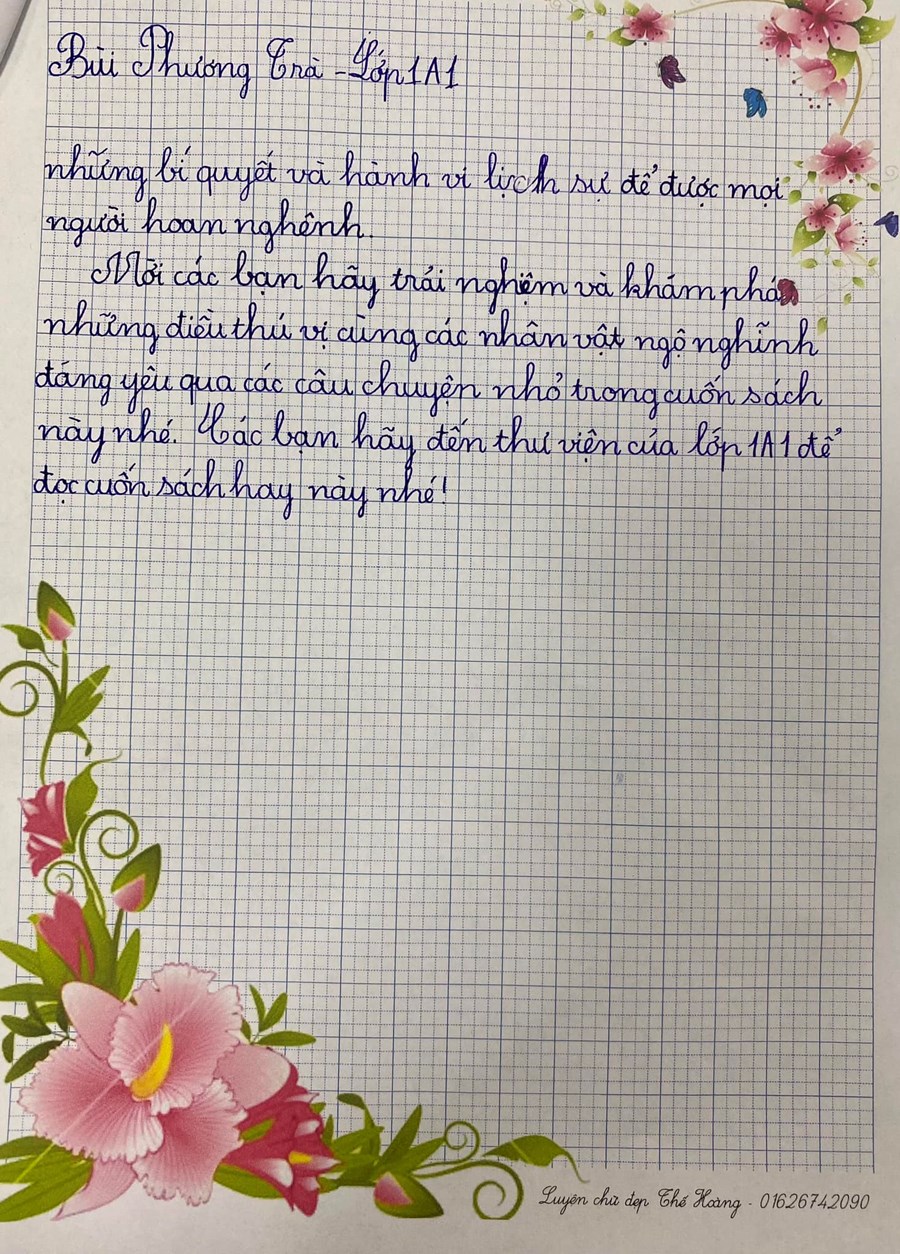 Bùi Phương Trà - Lớp 1A1
những bí quyết và hành vi lịch sự để được mọi
người hoan nghênh.
Mời các bạn hãy trải nghiệm và khám phá
những điều thú vị cùng các nhân vật ngộ nghĩnh
đáng yêu qua các câu chuyện nhỏ trong cuốn sách
này nhé. Các bạn hãy đến thư viện của lớp 1A1 để
đọc cuốn sách hay này nhé!
Luyện chữ đẹp Thế Hoàng - 01626742090